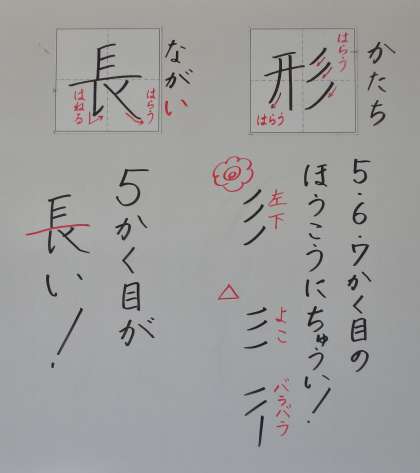 かたち
形
はらう
はらう
5・6・7かく目の
ほうこうにちゅうい!
左下
よこ
バラバラ
ながい
長
はねる
はらう
5かく目が
長い!